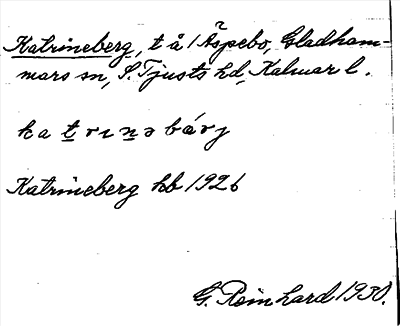 Katrineberg, t å 1 Äspebo, Gladham-
mars sn, S. Tjusts hd, Kalmar l.
katrınəbárj
Katrineberg kb 1926
G. Reinhard 1930.